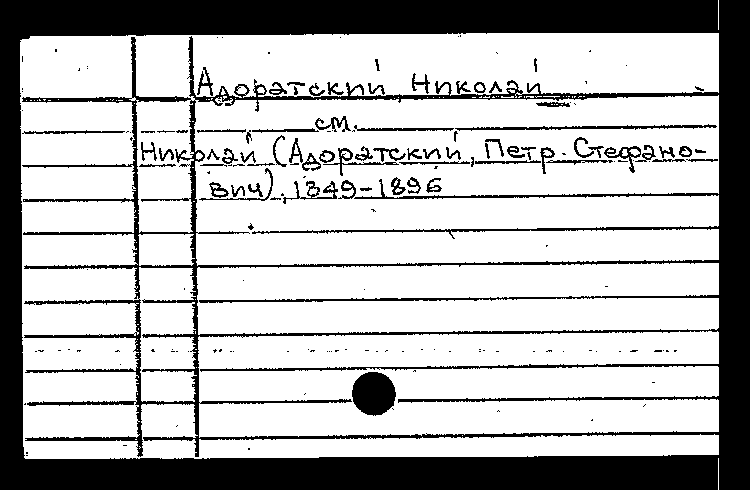 Адоратский, Николай
см.
Николай (Адоратский, Петр Стефано-
вич), 1849-1896